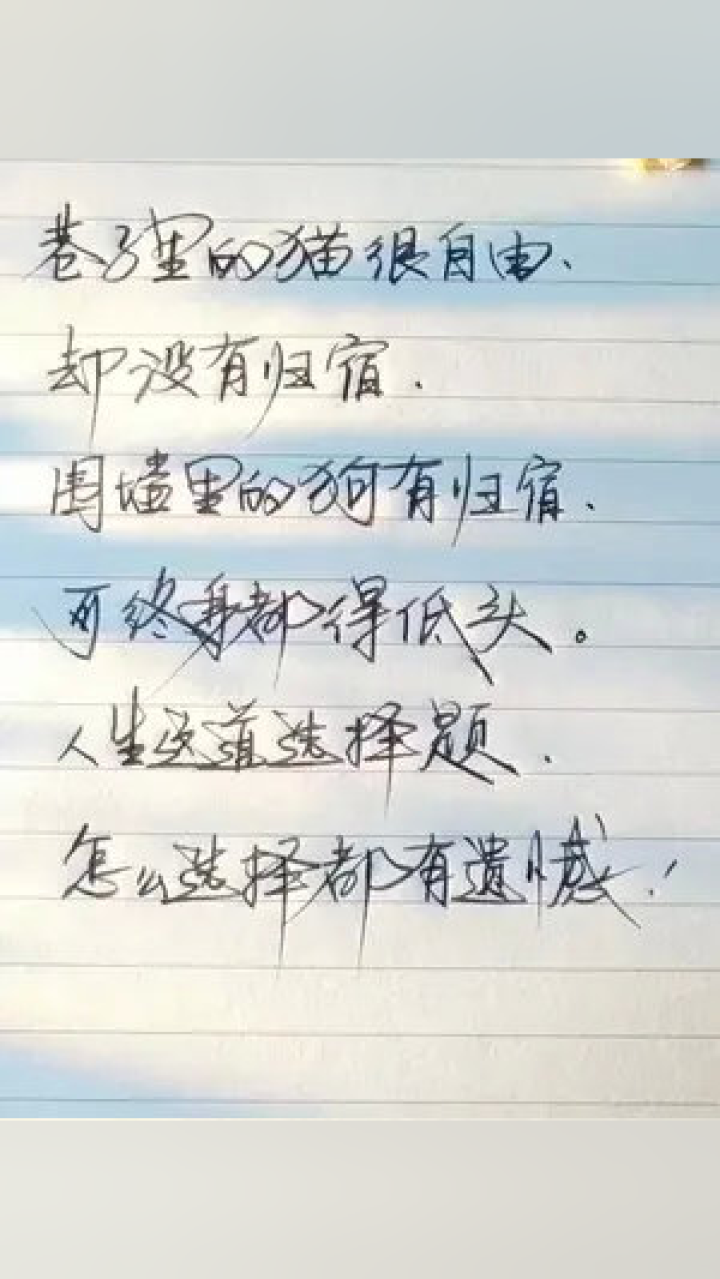 巷子里的猫很自由、
却没有归宿.
围墙里的狗有归宿、
可终身都得低头。
人生这道选择题、
怎么选择都有遗憾!